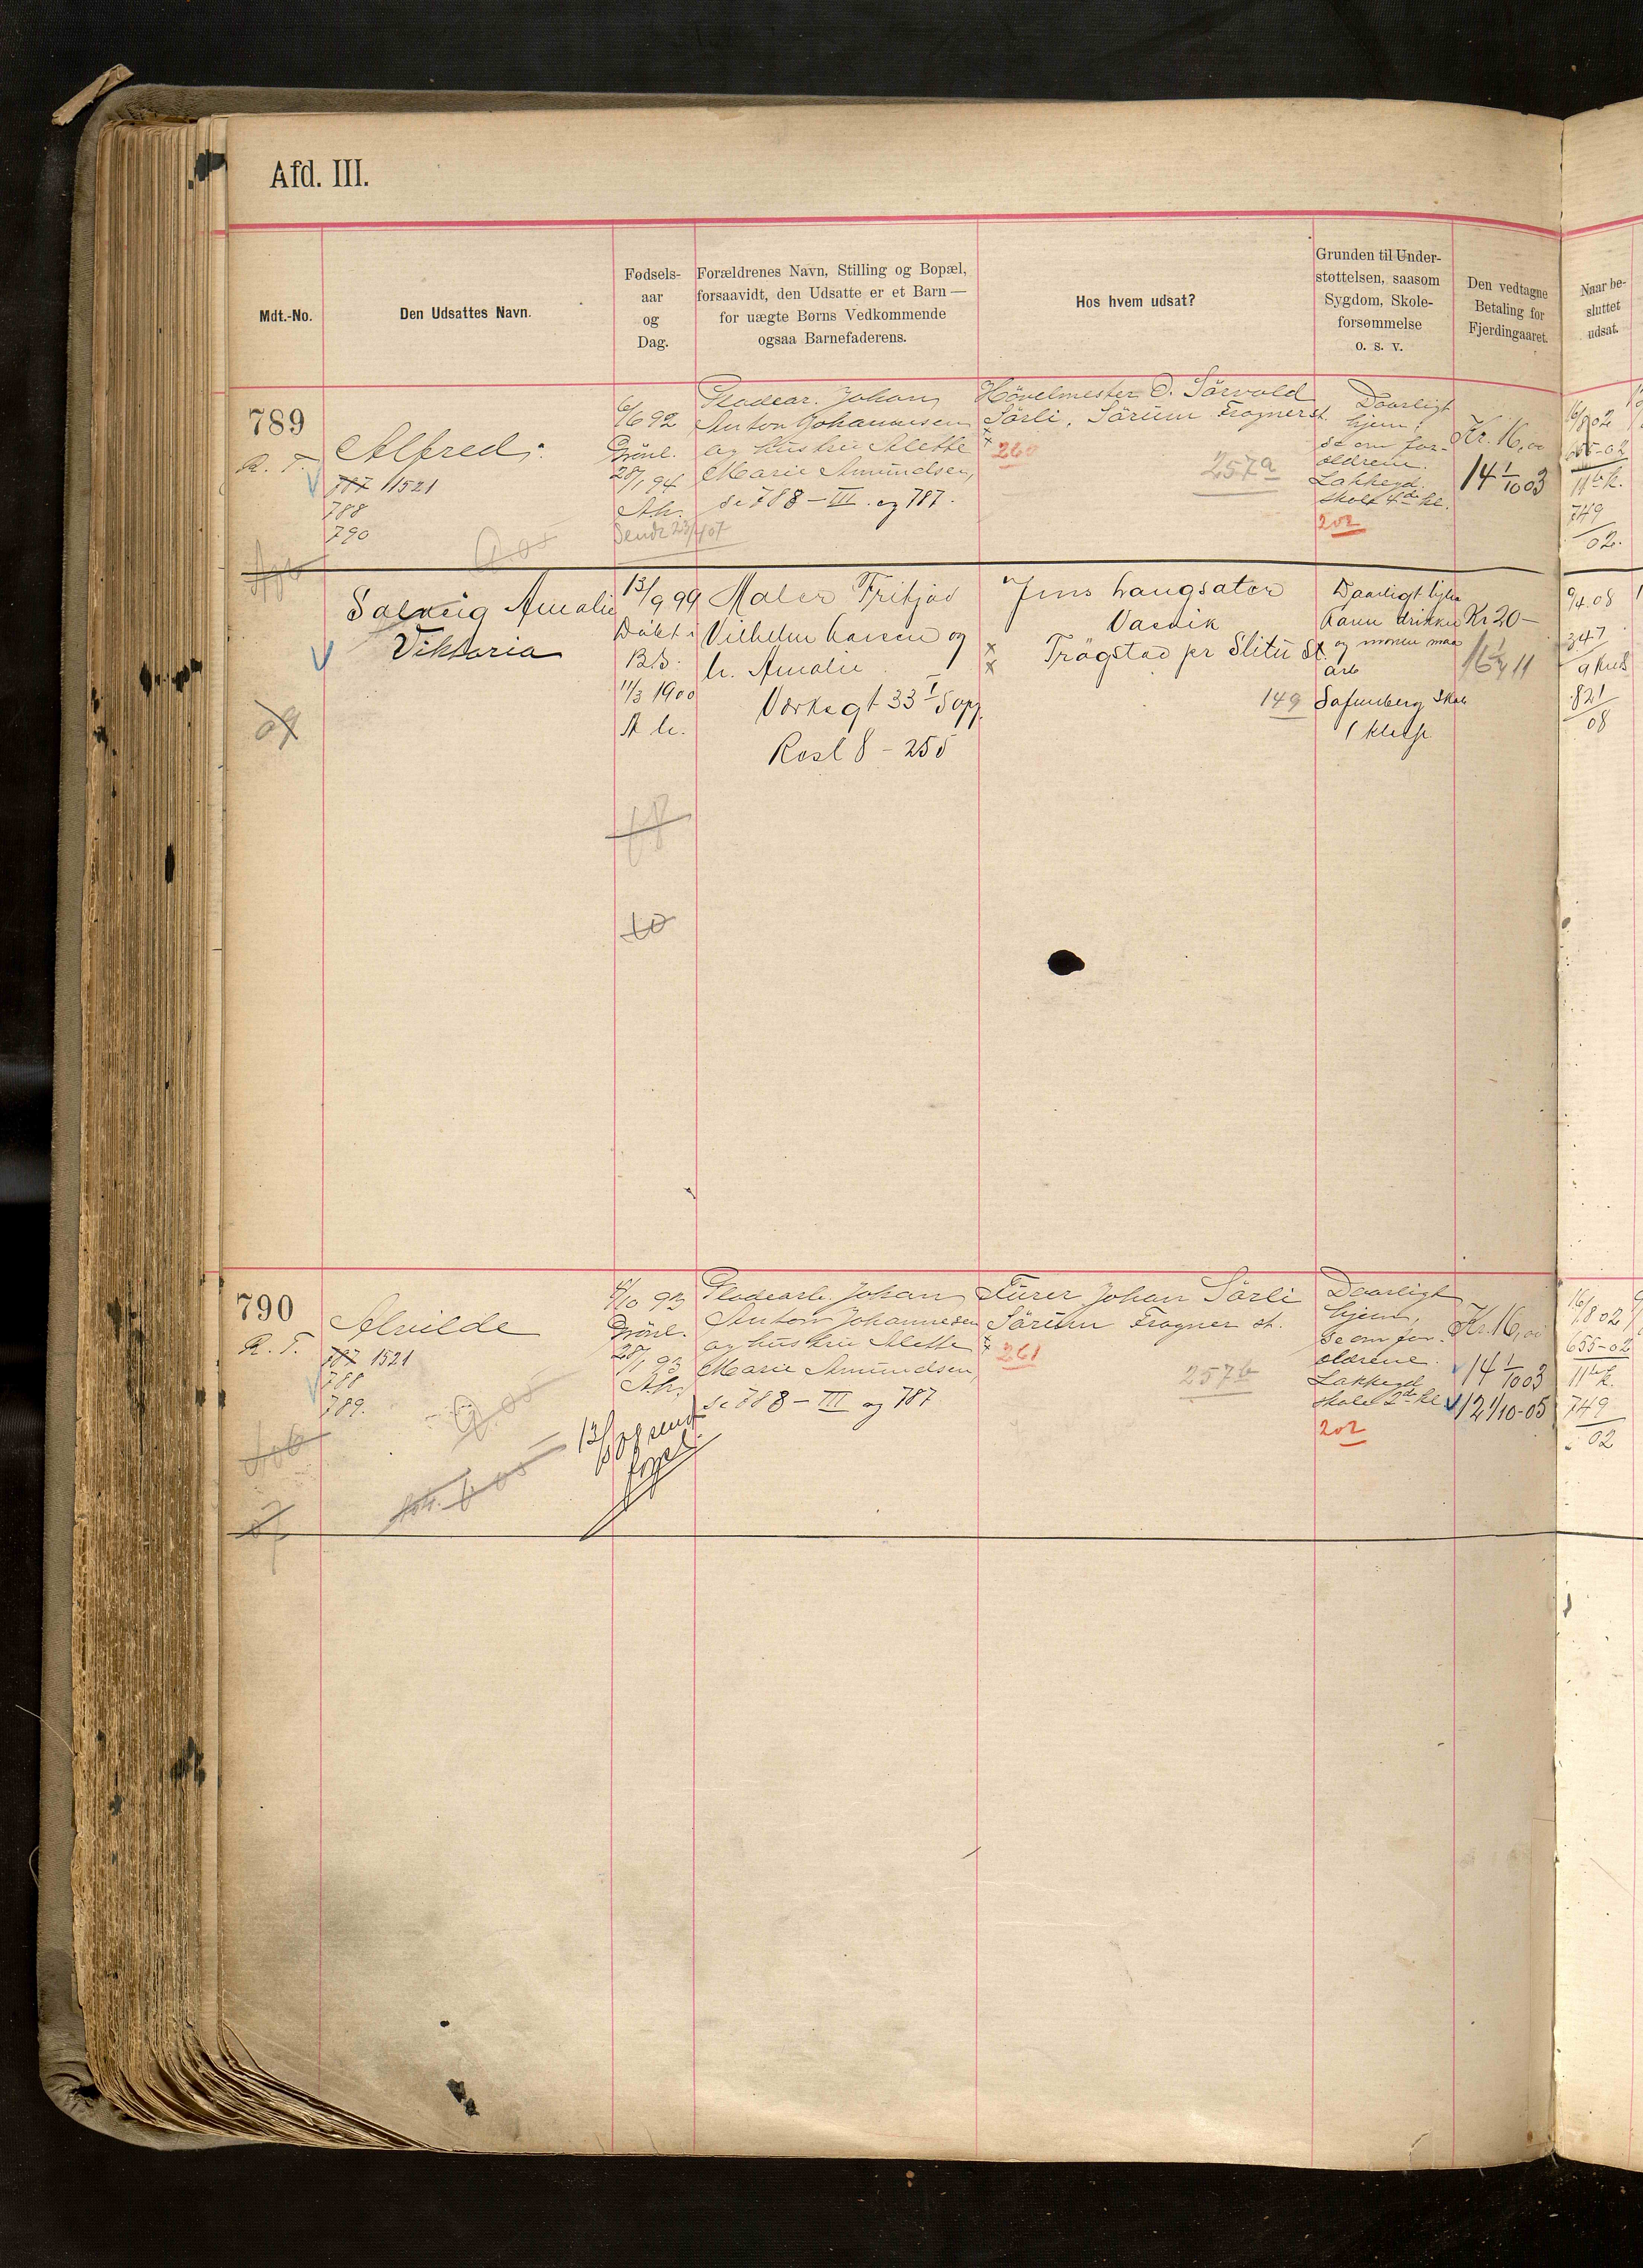 Afd. III.
Mdt.-No.
Den Udsattes Navn.
Fødsels-
aar
og
Dag.
Forældrenes Navn, Stilling og Bopæl,
forsaavidt, den Udsatte er et Barn —
for uægte Børns Vedkommende
ogsaa Barnefaderens.
Hos hvem udsat?
Grunden til Under-
støttelsen, saasom
Sygdom, Skole-
forsømmelse
o. s. v.
Den vedtagne
Betaling for
Fjerdingaaret.
Naar be-
sluttet
udsat.
789
R. T.
Alfred
787 1521
788
790
6/6 92
Grönl.
28/1 94
Ah.
Sendt 23/4 07
Johan
Anton Johannesen
og hustru Alette
Marie Amundsen,
se 788 – III. og 787.
Hövelmester O. Sörvald
Sörli, Sörum Frogner st.
260
257a
Daarligt
hjem,
se om for-
ældrene.
Lakkegd.
skole 4de kl.
202
Kr. 16,00
14 1/10 03
16/8 02
655-02
11te k.
749
02.
Solveig Amalie
Viktoria
13/9 99
Döbt
11/3 1900
A h.
Maler Fritjof
Vilhelm Larsen og
h. Amalie
Verksgt 33 I opg.
Rosl 8 – 255
Jens Haugsater
Trögstad pr Slitu St.
149
Daarligt hjem
Faren drikker
og moren maa
arb
Skole
1 klasse
Kr 20 –
16 1/4 11
9/4.08
347
821
08
790
R. T.
Alvilde
787 1521
788
789.
4/10 93
Grönl.
28/1 93
Ah.
Johan
Anton Johannesen
og hustru Alette
Marie Amundsen,
se 788 – III og 787.
Furer Johan Sörli
Sörum Frogner st.
261
257b
Daarligt
hjem,
se om for-
ældrene.
Lakkegd
skole 2de kl
202
Kr. 16,00
14 1/10 03
12 1/10-05
16/8 02
655-02
11te k.
749
02